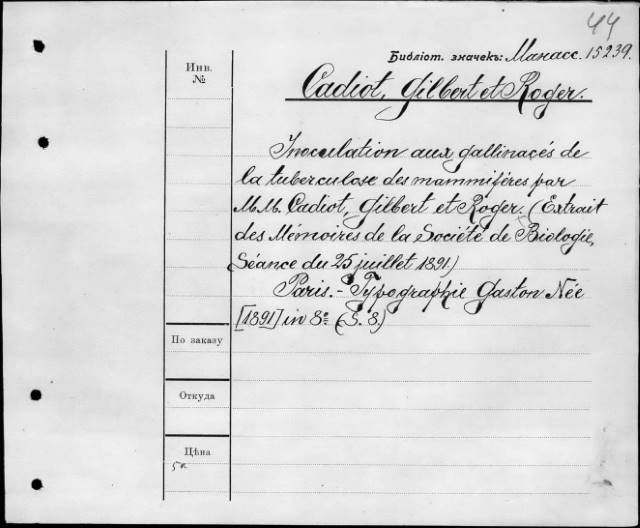 44
Библіот. значекъ: Манасс. 15239.
Инв.
№
Cadiot, Gilbert et Roger.
Inoculation aux gallinacés de
la tuberculose des mammifères par
M.M. Cadiot, Gilbert et Roger. (Extrait
des Mémoires de la Société de Biologie,
Séance du 25 juillet 1891.)
Paris. - Typographie Gaston Née
[1891] in 8° (S. 8.)
По заказу
Откуда
Цѣна